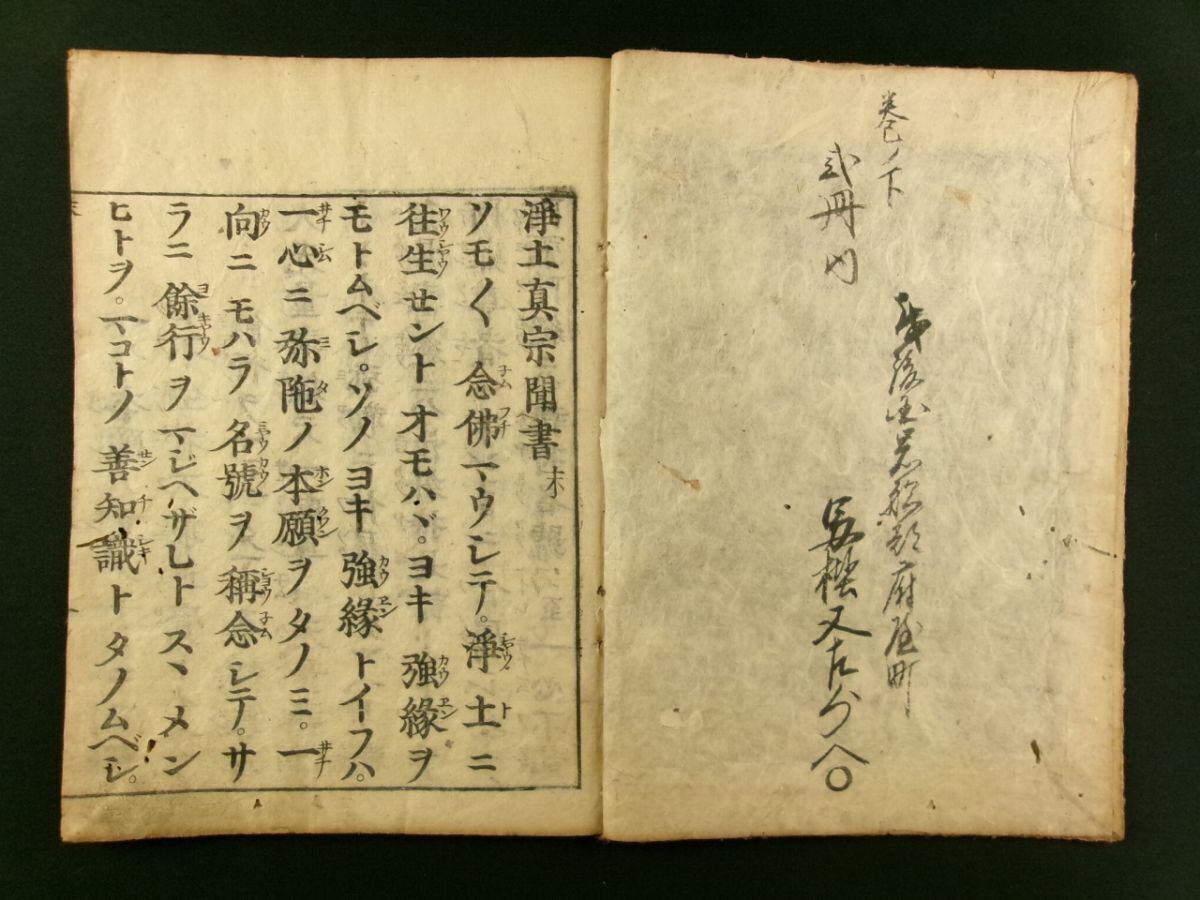 巻ノ下
弐冊内
後国岩船郡府屋町
又右
淨土真宗聞書 末
ソモ〱念佛マウシテ。淨土ニ
往生セントオモハヾ。ヨキ強縁ヲ
モトムベシ。ソノヨキ強縁トイフハ。
一心ニ弥陁ノ本願ヲタノミ。一
向ニモハラ名號ヲ稱念シテ。サ
ラニ餘行ヲマジヘザレトスヽメン
ヒトヲ。マコトノ善知識トタノムベシ。